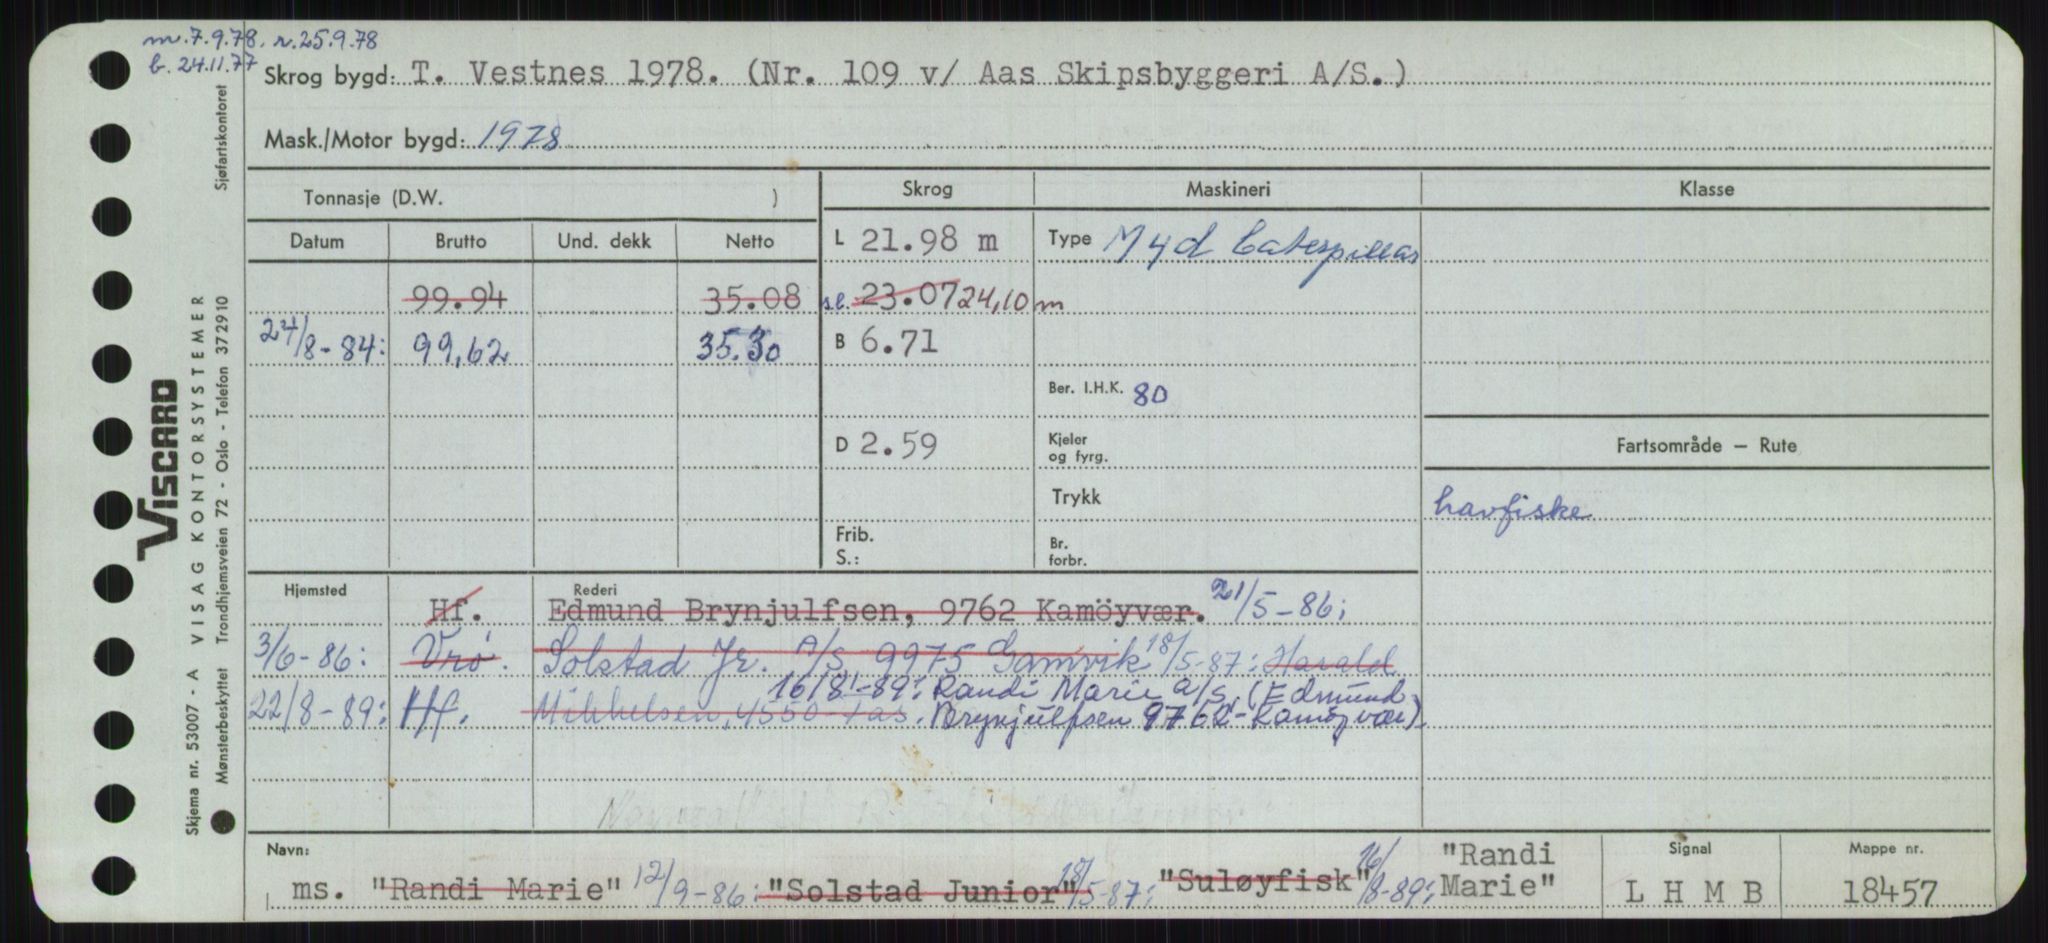 m. 7.9.78. r. 25.9.78
b. 24.11.77
Skrog bygd: T. Vestnes 1978. (Nr. 109 v/ Aas Skipsbyggeri A/S.)
Mask./Motor bygd: 1978
Tonnasje (D.W. )
Skrog Maskineri Klasse
Datum Brutto Und. dekk Netto
L 21.98 m Type M 4 d Caterpillar
99.94 35.08 s.l. 23.07 24,10 m
24/8-84: 99,62 35.30 B 6.71
Ber. I.H.K. 80
D 2.59 Kjeler og fyrg.
Fartsområde — Rute
Trykk
havfiske
Frib. S.: Br. forbr.
Hjemsted Rederi
Hf. Edmund Brynjulfsen, 9762 Kamöyvær. 21/5-86;
3/6-86: Vrö. Solstad Jr. A/S 9975 Gamvik 18/5-87: Harald
16/8-89: Randi Marie a/s, (Edmund
22/8-89: Hf. Mikkelsen, 4550 Fas. Brynjulfsen 9762-Kamöyvær)
Navn: Signal Mappe nr.
ms. "Randi Marie" 12/9-86: "Solstad Junior" 18/5-87: "Suløyfisk" 16/8-89: "Randi Marie"
L H M B 18457
VISCARD
VISAG KONTORSYSTEMER
Skjema nr. 53007 - A
Mønsterbeskyttet Trondhjemsveien 72 - Oslo - Telefon 372910
Sjøfartskontoret